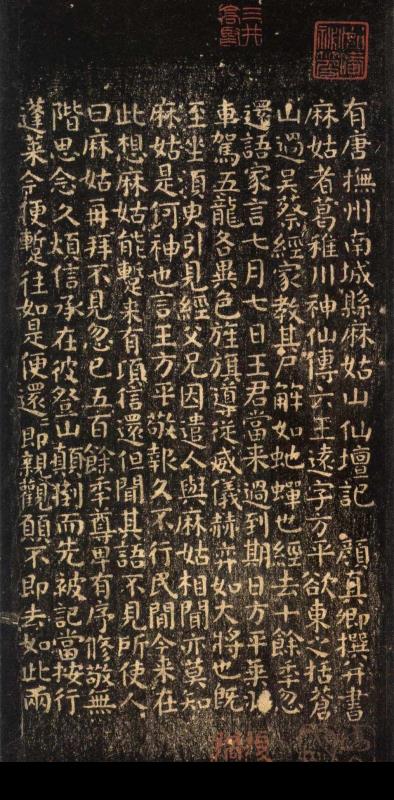 有唐撫州南城縣麻姑山仙壇記 顏真卿撰并書
麻姑者葛稚川神仙傳云王遠字方平欲東之括蒼
山過吳蔡經家教其尸解如虵蟬也經去十餘季忽
還語家言七月七日王君當来過到期日方平乗
車駕五龍各異色旌旗導從威儀赫弈如大將也既
至坐須臾引見經父兄因遣人與麻姑相聞亦莫知
麻姑是何神也言王方平敬報久不行民間今来在
此想麻姑能暫来有頃信還但聞其語不見所使人
曰麻姑再拜不見忽已五百餘季尊卑有序修敬無
階思念久煩信承在彼登山顛倒而先被記當按行
蓬莱今便暫往如是便還即親觀願不即去如此兩